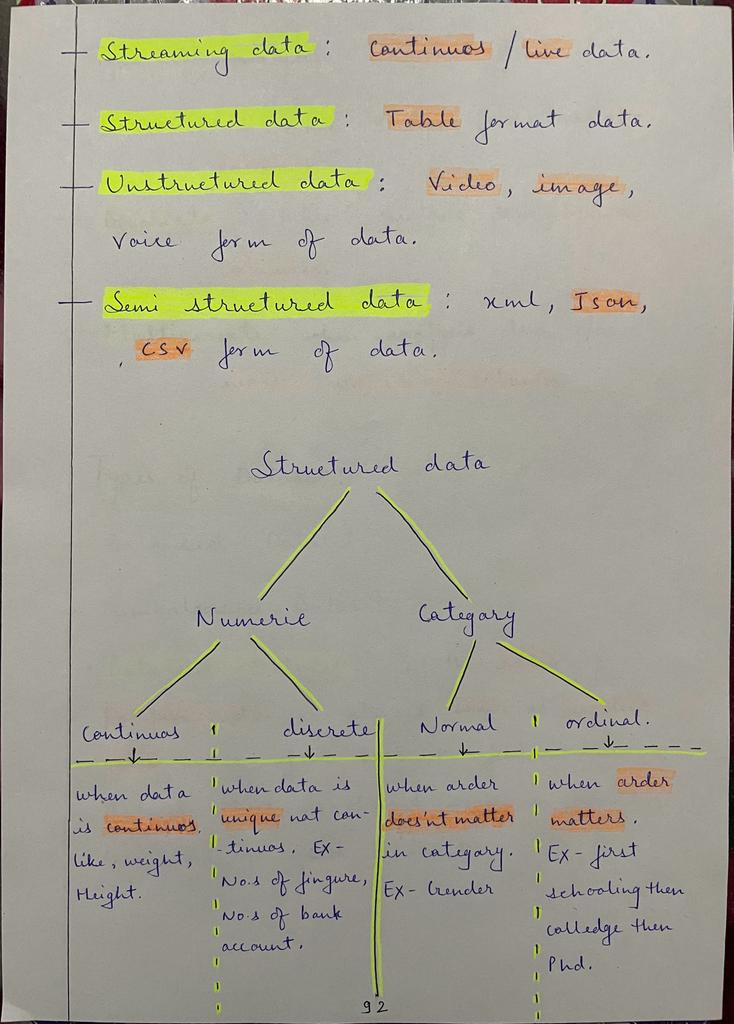 Streaming data : Continuos / live data.
Structured data : Table format data.
Unstructured data : Video, image,
Voice form of data.
Semi structured data : xml, Json,
, CSV form of data.
Structured data
Numeric Category
Continuos discrete Normal ordinal.
when data
is continuos.
like, weight,
Height.
when data is
unique not con-
-tinuos. Ex-
No.s of fingure,
No.s of bank
account.
when order
does'nt matter
in category.
Ex- Gender
when order
matters.
Ex- first
schooling then
colledge then
Phd.
92